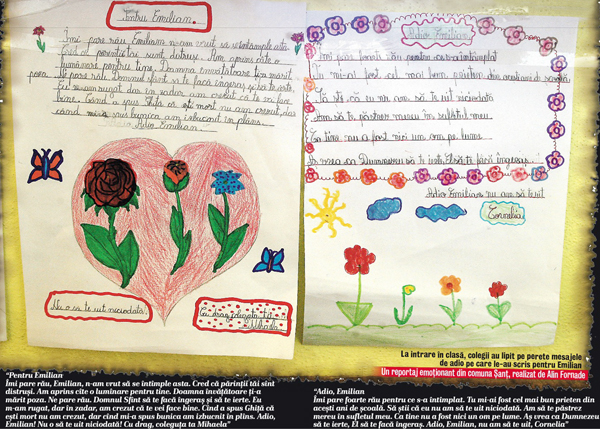 Pentru Emilian.
Îmi pare rău Emilian n-am vrut să se întâmple asta.
Cred că părinții tăi sunt distruși. Am aprins câte o
lumânare pentru tine. Doamna învățătoare ți-a mărit
poza. Ne pare rău. Domnul sfânt să te facă îngeraș și să te ierte.
Eu m-am rugat dar în zadar, am crezut că te vei face
bine. Când a spus Ghiță că ești mort nu am crezut, dar
când mi-a spus bunica am izbucnit în plâns.
Adio Emilian.
Nu o să te uit niciodată.
Cu drag, colegata ta
Mihaela
Adio Emilian
Îmi pare foarte rău pentru ce s-a întâmplat
Tu mi-ai fost cel mai bun prieten din acești ani de școală.
Să știi că eu nu am să te uit niciodată
Am să te păstrez mereu în sufletul meu
Ca tine nu a fost nici un om pe lume
Aș vrea ca Dumnezeu să te ierte, El să te facă îngeraș.
Adio Emilian nu am să te uit
Cornelia
La intrare în clasă, colegii au lipit pe perete mesajele
de adio pe care le-au scris pentru Emilian
Un reportaj emoționant din comuna Șanț, realizat de Alin Fornade
"Pentru Emilian
Îmi pare rău, Emilian, n-am vrut să se întîmple asta. Cred că părinții tăi sînt
distruși. Am aprins cîte o luminare pentru tine. Doamna învățătoare ți-a
mărit poza. Ne pare rău. Domnul Sfînt să te facă îngeraș și să te ierte. Eu
m-am rugat, dar în zadar, am crezut că te vei face bine. Cînd a spus Ghiță că
ești mort nu am crezut, dar cînd mi-a spus bunica am izbucnit în plîns. Adio,
Emilian! Nu o să te uit niciodată! Cu drag, coleguța ta Mihaela"
"Adio, Emilian
Îmi pare foarte rău pentru ce s-a întîmplat. Tu mi-ai fost cel mai bun prieten din
acești ani de școală. Să știi că eu nu am să te uit niciodată. Am să te păstrez
mereu în sufletul meu. Ca tine nu a fost nici un om pe lume. Aș vrea ca Dumnezeu
să te ierte, El să te facă îngeraș. Adio, Emilian, nu am să te uit, Cornelia"